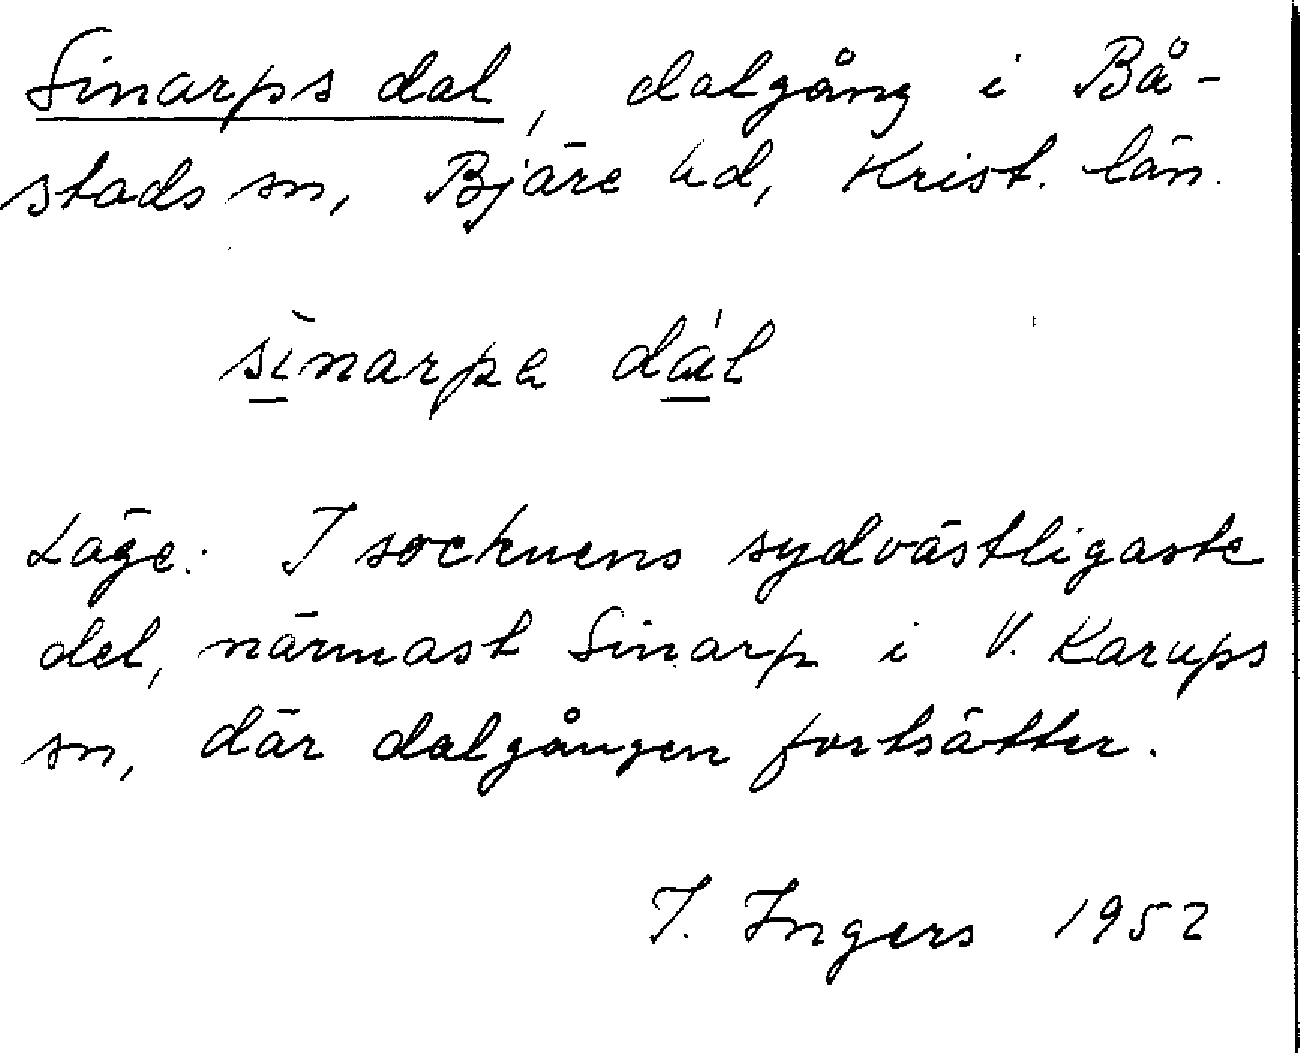 Sinarps dal, dalgång i Bå-
stads sn, Bjäre hd, Krist. län.
sìnarpa dál
Läge: I socknens sydvästligaste
del, närmast Sinarp i V. Karups
sn, där dalgången fortsätter.
I. Ingers 1952